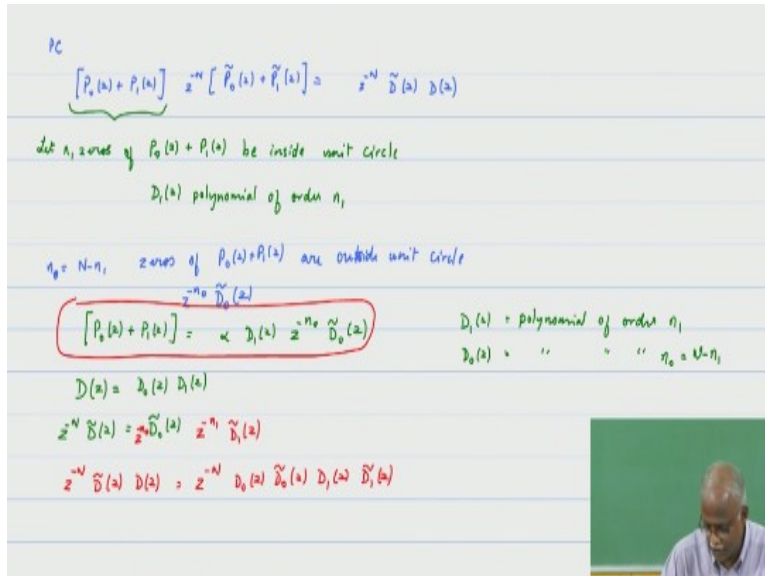 PC
[P₀(z) + P₁(z)] z⁻ᴺ [P̃₀(z) + P̃₁(z)] = z⁻ᴺ D̃(z) D(z)
Let n₁ zeros of P₀(z) + P₁(z) be inside unit circle
D₁(z) polynomial of order n₁
n₀ = N-n₁ zeros of P₀(z)+P₁(z) are outside unit circle
z^{-n₀} D̃₀(z)
[P₀(z) + P₁(z)] = α D₁(z) z^{-n₀} D̃₀(z)
D₁(z) = polynomial of order n₁
D₀(z) = " " " n₀ = N-n₁
D(z) = D₀(z) D₁(z)
z⁻ᴺ D̃(z) = z^{-n₀} D̃₀(z) z^{-n₁} D̃₁(z)
z⁻ᴺ D̃(z) D(z) = z⁻ᴺ D₀(z) D̃₀(z) D₁(z) D̃₁(z)